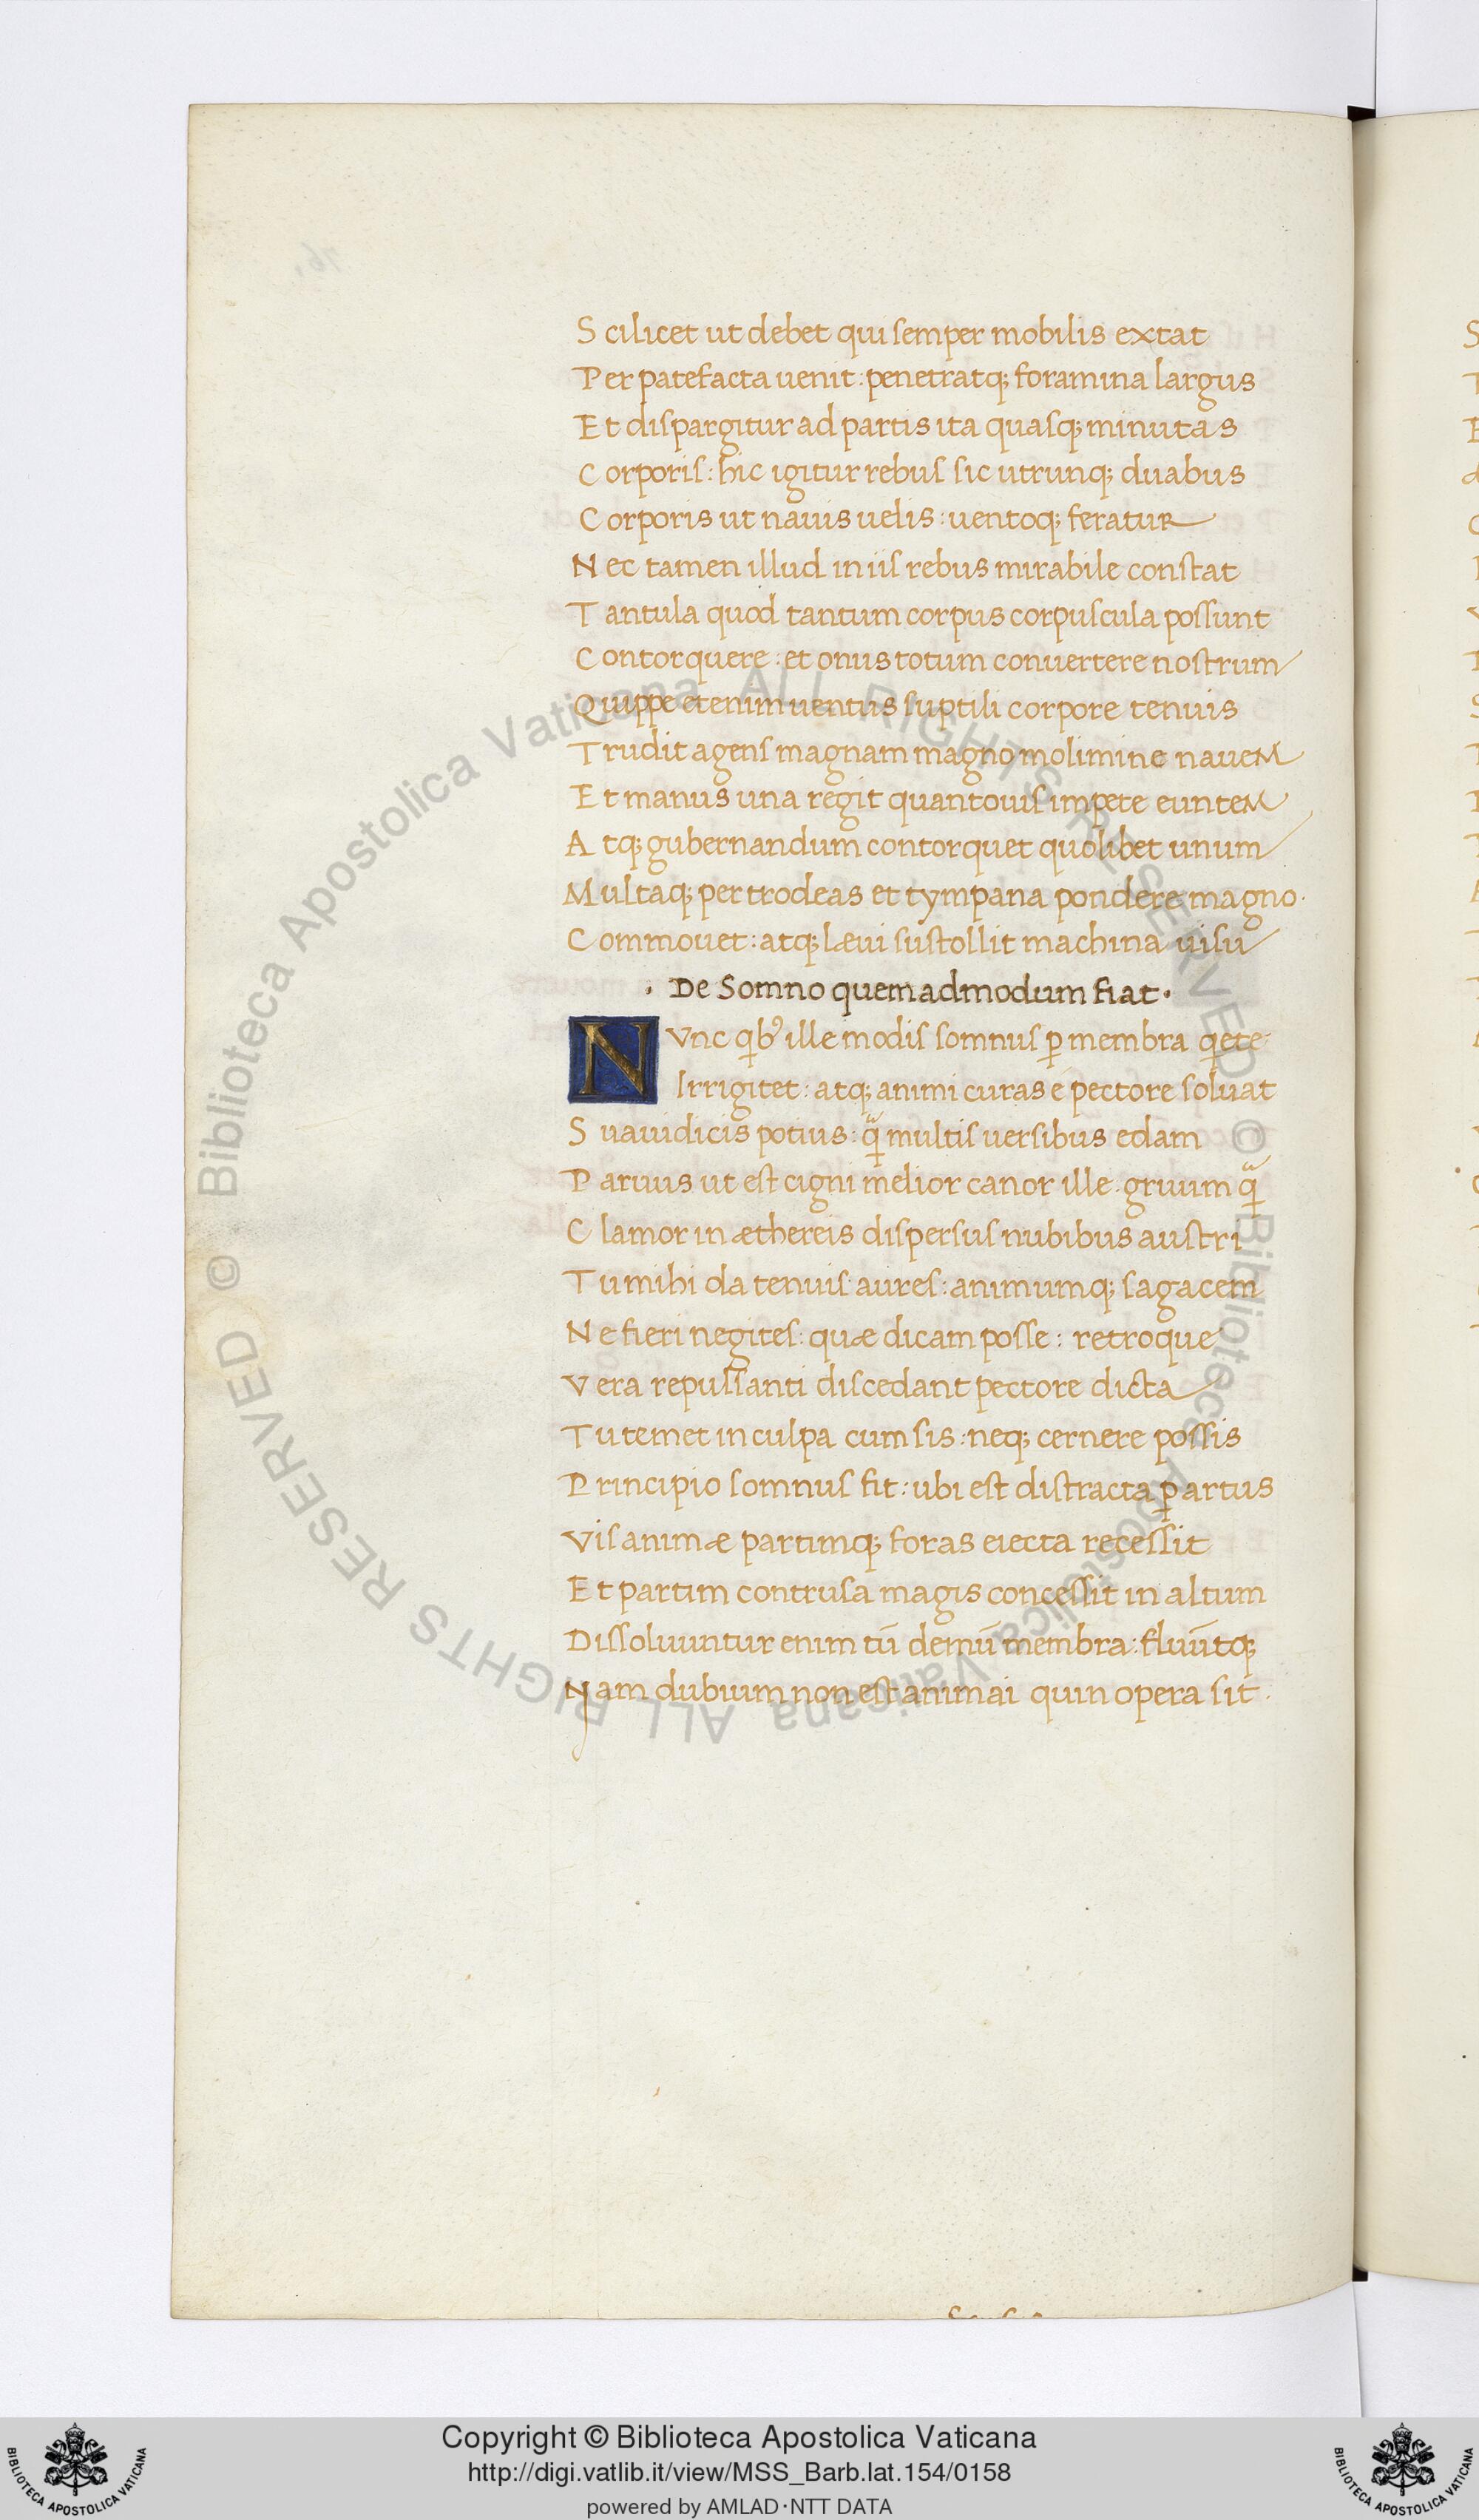 Scilicet ut debet qui semper mobilis extat
Per patefacta uenit: penetratq; foramina largus
Et dispargitur ad partis ita quasq; minutas
Corporis: hic igitur rebus sic utrunq; duabus
Corporis ut nauis uelis: uentoq; feratur
Nec tamen illud in iis rebus mirabile constat
Tantula quod tantum corpus corpuscula possunt
Contorquere: et onus totum conuertere nostrum
Quippe etenim uentus suptili corpore tenuis
Trudit agens magnam magno molimine nauem
Et manus una regit quantouis impete euntem
Atq; gubernandum contorquet quolibet unum
Multaq; per trodeas et tympana pondere magno.
Commouet: atq; læui sustollit machina uisu
· De Somno quemadmodum fiat ·
NVnc qb᾽ ille modis somnus ꝑ membra qete
Irrigitet: atq; animi curas e pectore soluat
Suauidicis potius: ꝙ̃ multis uersibus edam
Paruus ut est cigni melior canor ille. gruum ꝙ̃
Clamor in æthereis dispersus nubibus austri
Tu mihi da tenuis aures: animumq; sagacem
Ne fieri negites: quæ dicam posse: retroque
Vera repulsanti discedant pectore dicta
Tutemet in culpa cum sis: neq; cernere possis
Principio somnus fit: ubi est distracta ꝑ artus
Vis animæ partimq; foras eiecta recessit
Et partim contrusa magis concessit in altum
Dissoluuntur enim tū demū membra: fluūtq;
Nam dubium non est animai quin opera sit.
Copyright © Biblioteca Apostolica Vaticana
http://digi.vatlib.it/view/MSS_Barb.lat.154/0158
powered by AMLAD·NTT DATA